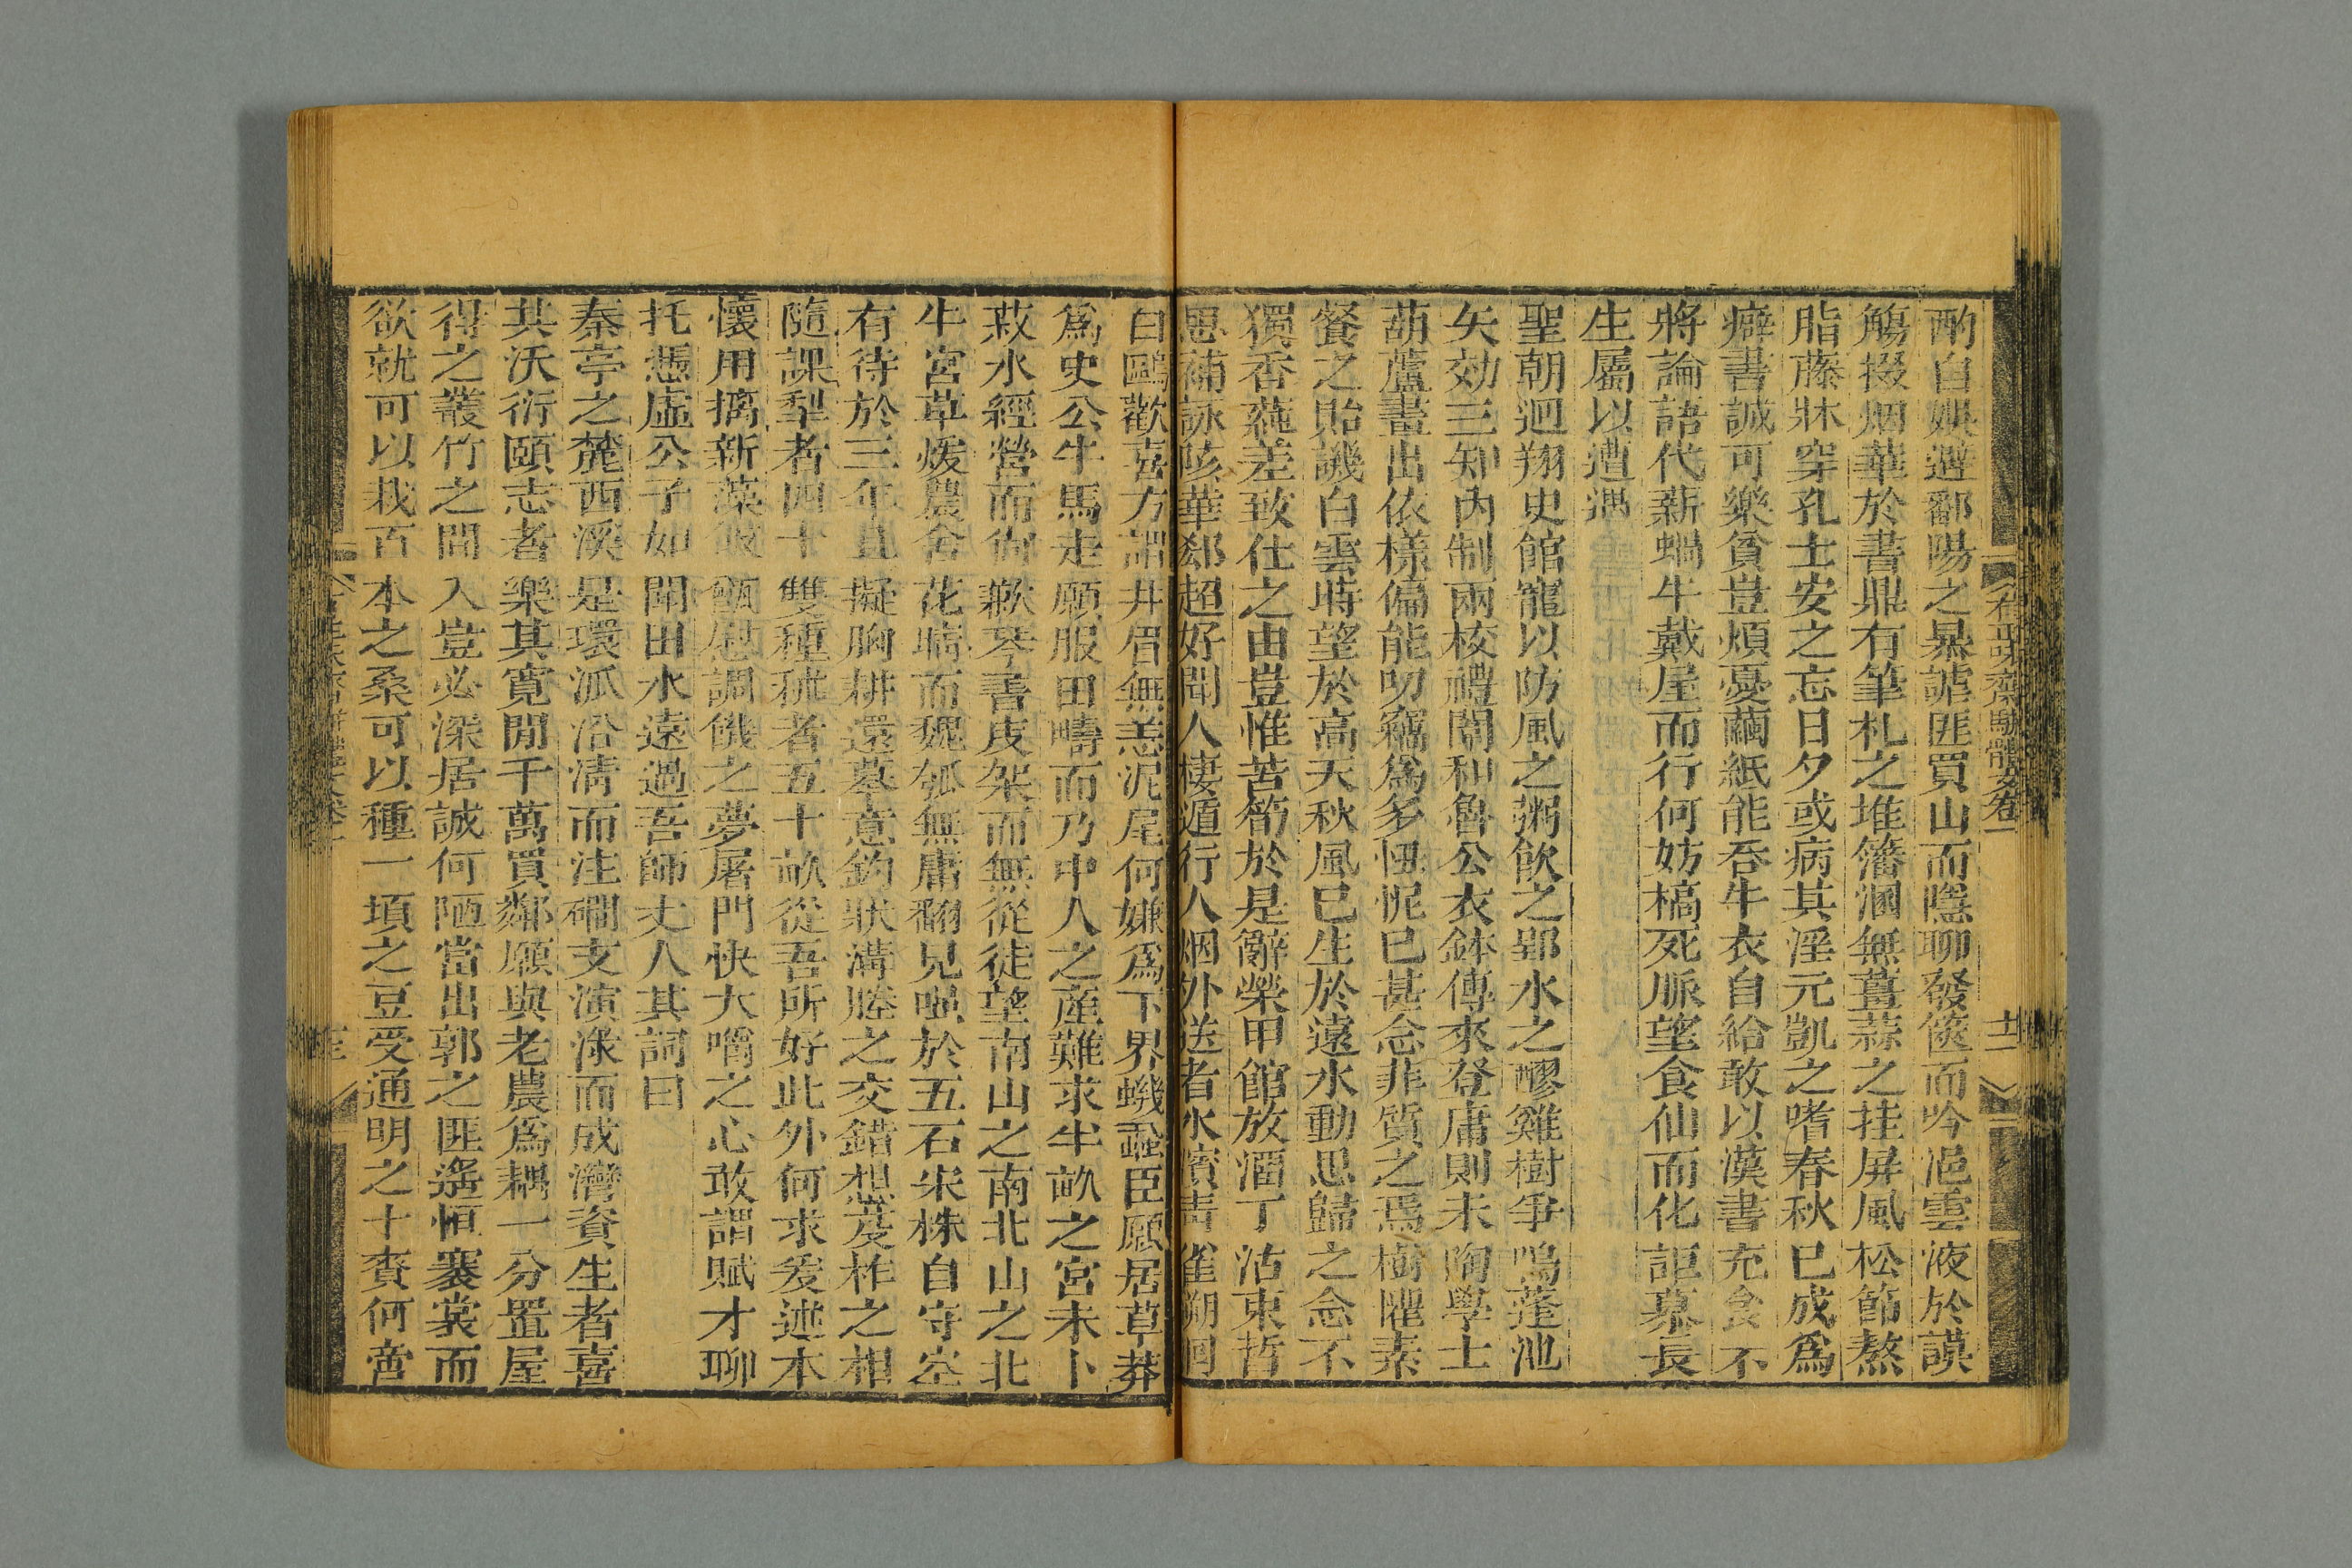 有正味齋駢體文卷一
十二
酌自娛遊鄱陽之暴謔匪買山而隱聊發篋而吟浥雲液於謨
觴掇烟華於書鼎有筆札之堆籓溷無薑蒜之挂屏風松節熬
脂藤牀穿孔士安之忘日夕或病其淫元凱之嗜春秋已成爲
癖書誠可樂貧豈煩憂繭紙能吞牛衣自給敢以漢書充食不
將論語代薪蝸牛戴屋而行何妨槁死脈望食仙而化詎慕長
生屬以遭遇
聖朝迴翔史館寵以防風之粥飲之郢水之醪雞樹爭鳴蓬池
矢効三知內制兩校禮闈和魯公衣鉢傳來登庸則未陶學士
葫蘆畫出依樣偏能叨竊爲多忸怩已甚念非質之焉樹懼素
餐之貽譏白雲時望於高天秋風已生於遠水動思歸之念不
獨香蓴差致仕之由豈惟苦筍於是辭榮甲館放溜丁沽東晳
思補詠陔華郄超好聞人棲遁行人烟外送者水濱青雀溯洄
白鷗歡喜方謂井眉無恙泥尾何嫌爲下界蟣蝨臣願居草莽
爲史公牛馬走願服田疇而乃中人之産難求半畝之宮未卜
菽水經營而尙歉琴書庋架而無從徒望南山之南北山之北
牛宮草煖農舍花晴而魏瓠無庸翻見嗤於五石宋株自守空
有待於三年且擬朐耕還摹意釣狀溝塍之交錯想芟柞之相
隨課犁者四十雙種秫者五十畝從吾所好此外何求爰述本
懷用摛新藻彼甑慰調饑之夢屠門快大嚼之心敢謂賦才聊
托憑虛公子如聞田水遠過吾師丈人其詞曰
秦亭之麓西溪是環派沿淸而注磵支演淥而成灣資生者喜
其沃衍頤志者樂其寛閒千萬買鄰願與老農爲耦一分置屋
得之叢竹之間入豈必深居誠何陋當出郭之匪遙恒褰裳而
欲就可以栽百本之桑可以種一頃之豆受通明之十賚何啻